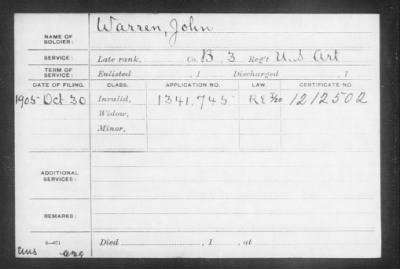 NAME OF SOLDIER: Warren, John
SERVICE: Late rank, Co. B 3 Reg't U.S Art
TERM OF SERVICE: Enlisted , 1 Discharged , 1
DATE OF FILING. CLASS. APPLICATION NO. LAW. CERTIFICATE NO.
1905 Oct 30 Invalid, 1341,745 1212502
Widow,
Minor,
ADDITIONAL SERVICES:
REMARKS:
Died , 1 , at